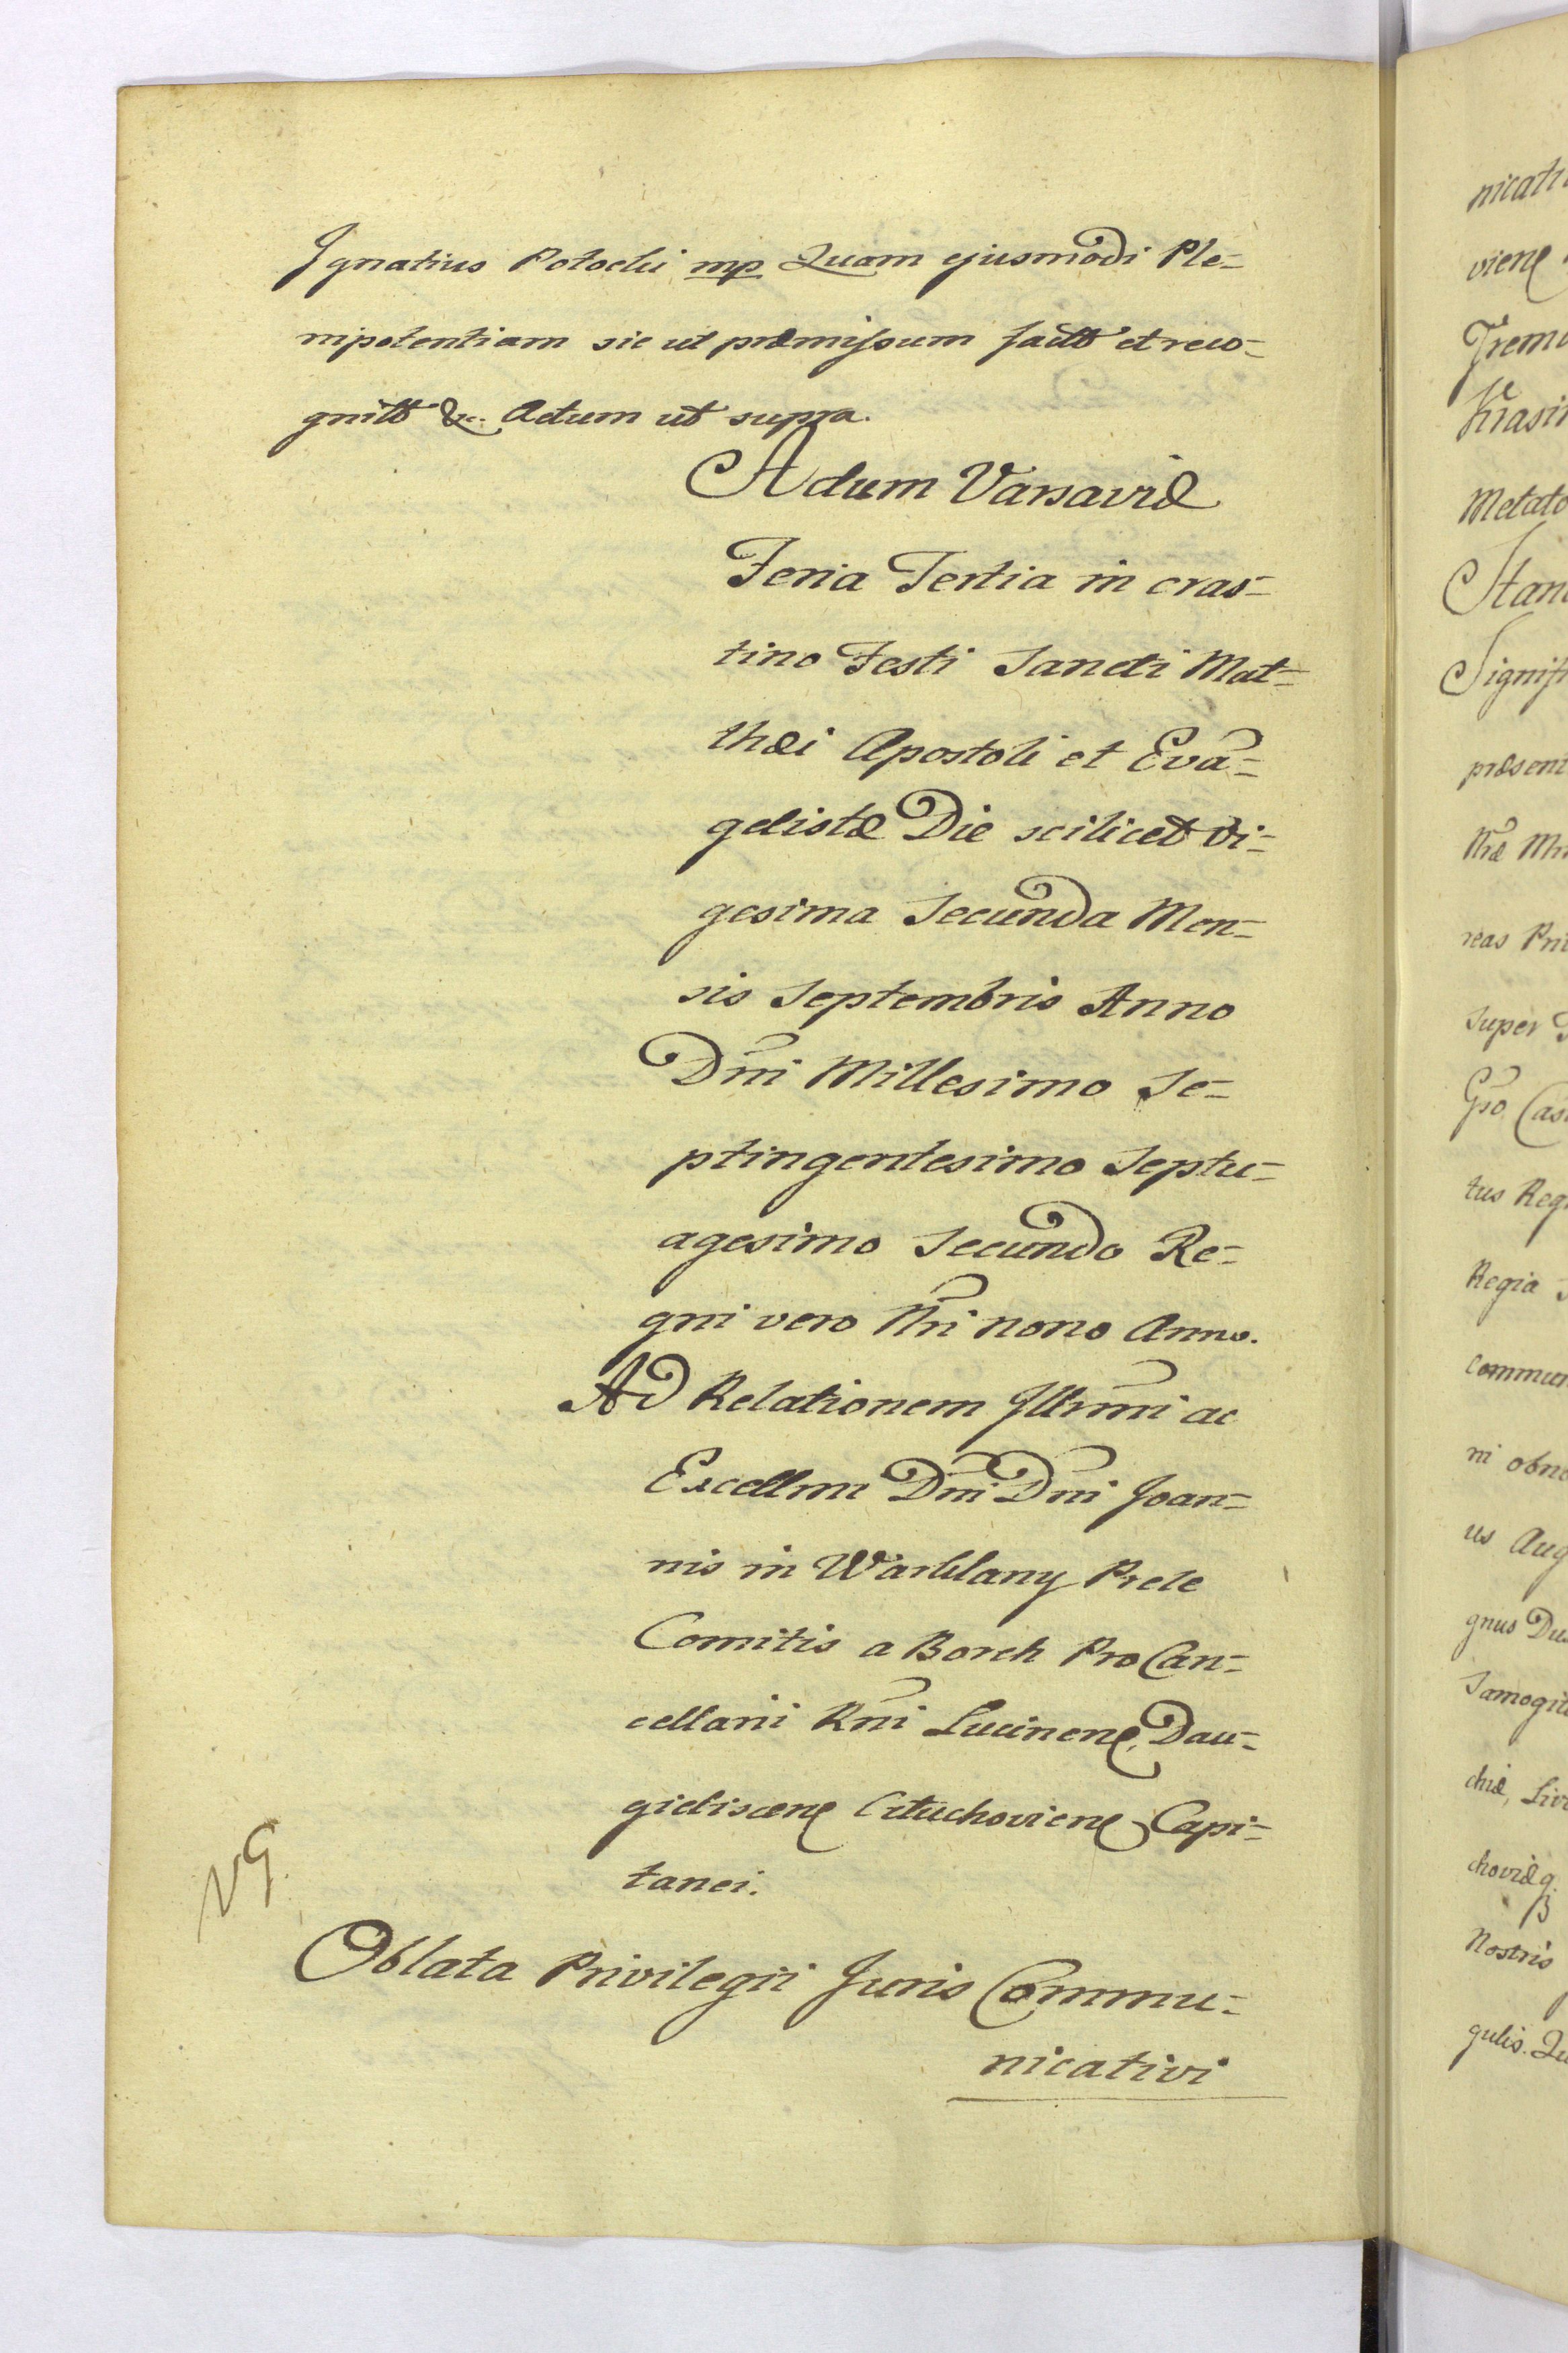 Ignatius Potocki mp Quam ejusmodi Ple=
nipotentiam sic ut præmissum factt et reco=
gnitt &c. Actum ut supra.
Actum Varsaviæ
Feria Tertia in cras=
tino Festi Sancti Mat=
thæi Apostoli et Eva=
gelistæ Die scilicet vi=
gesima Secunda Men=
sis Septembris Anno
Dni Millesimo Se=
ptingentesimo Septu=
agesimo Secundo Re=
gni vero Nri nono Anno.
Ad Relationem Illrmi ac
Excellmi Dni Dni Joan=
nis in Warklany Prele
Comitis a Borch ProCan=
cellarii Rni Lucinen, Dau=
gieliscen Lituchovien Capi=
tanei.
NG.
Oblata Privilegii Juris Commu=
nicativi
nicati
vien
Trem
Krasi
Metato
Stan
Signifi
præsent
Nræ
reas Pri
Super
Gro Cas
tus Reg
Regia
Commun
ni obno
us Aug
gnus Du
Samogit
chiæ, Liv
choviæ q.
Nostris
gulis. Qu